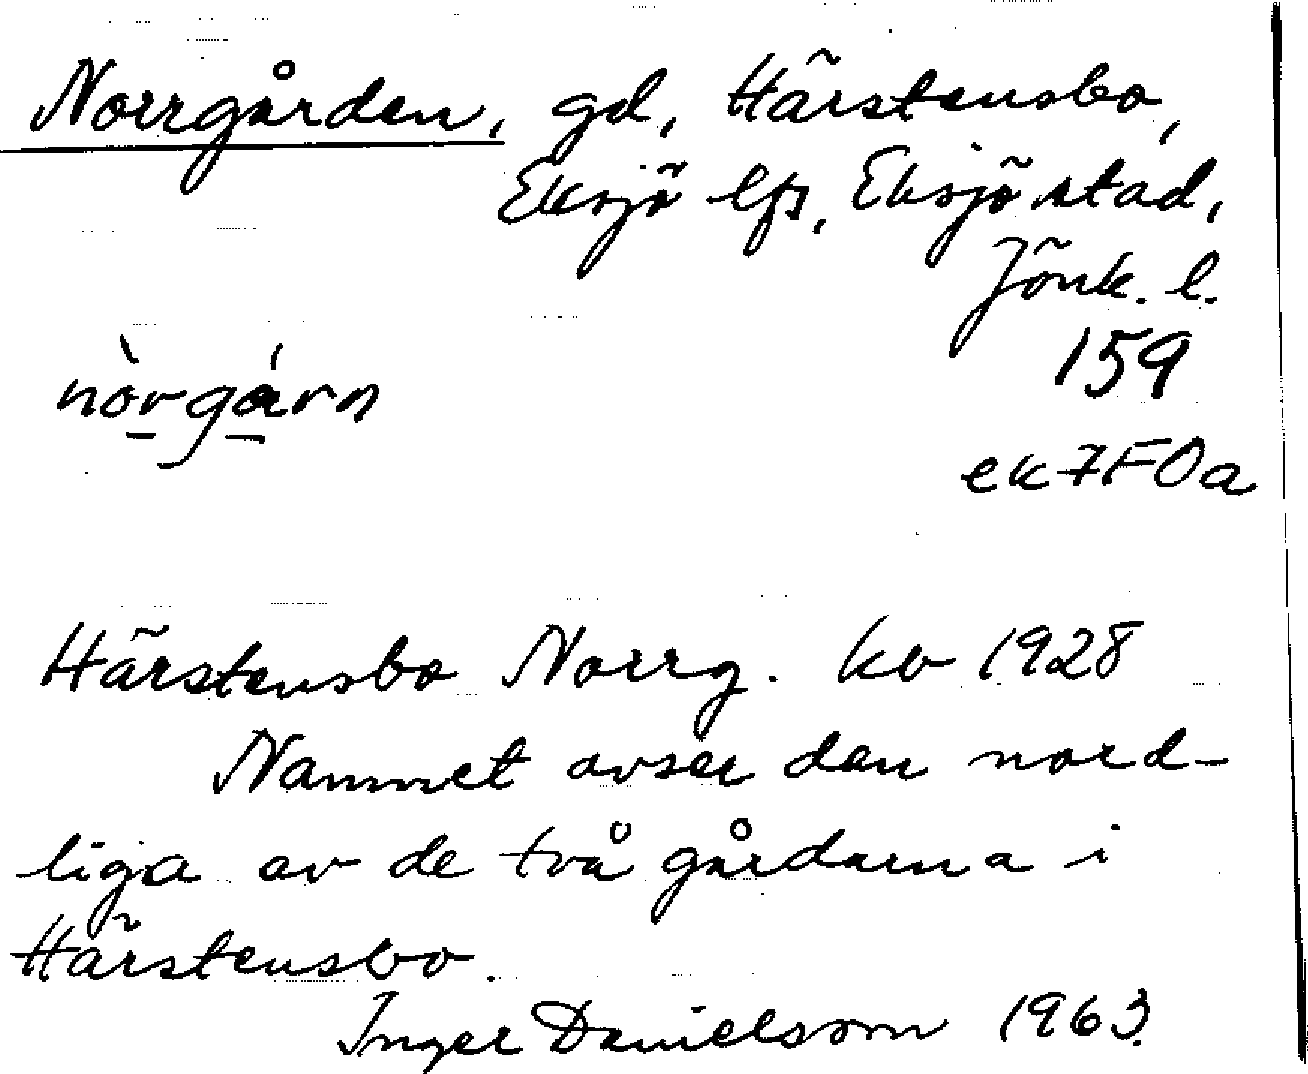 Norrgården, gd, Härstensbo,
Eksjö lfs, Eksjö stad,
Jönk. l.
159
nòrgárn
ek 7F0a
Härstensbo Norrg. kb 1928
Namnet avser den nord-
liga av de två gårdarna i
Härstensbo.
Inger Danielsson 1963